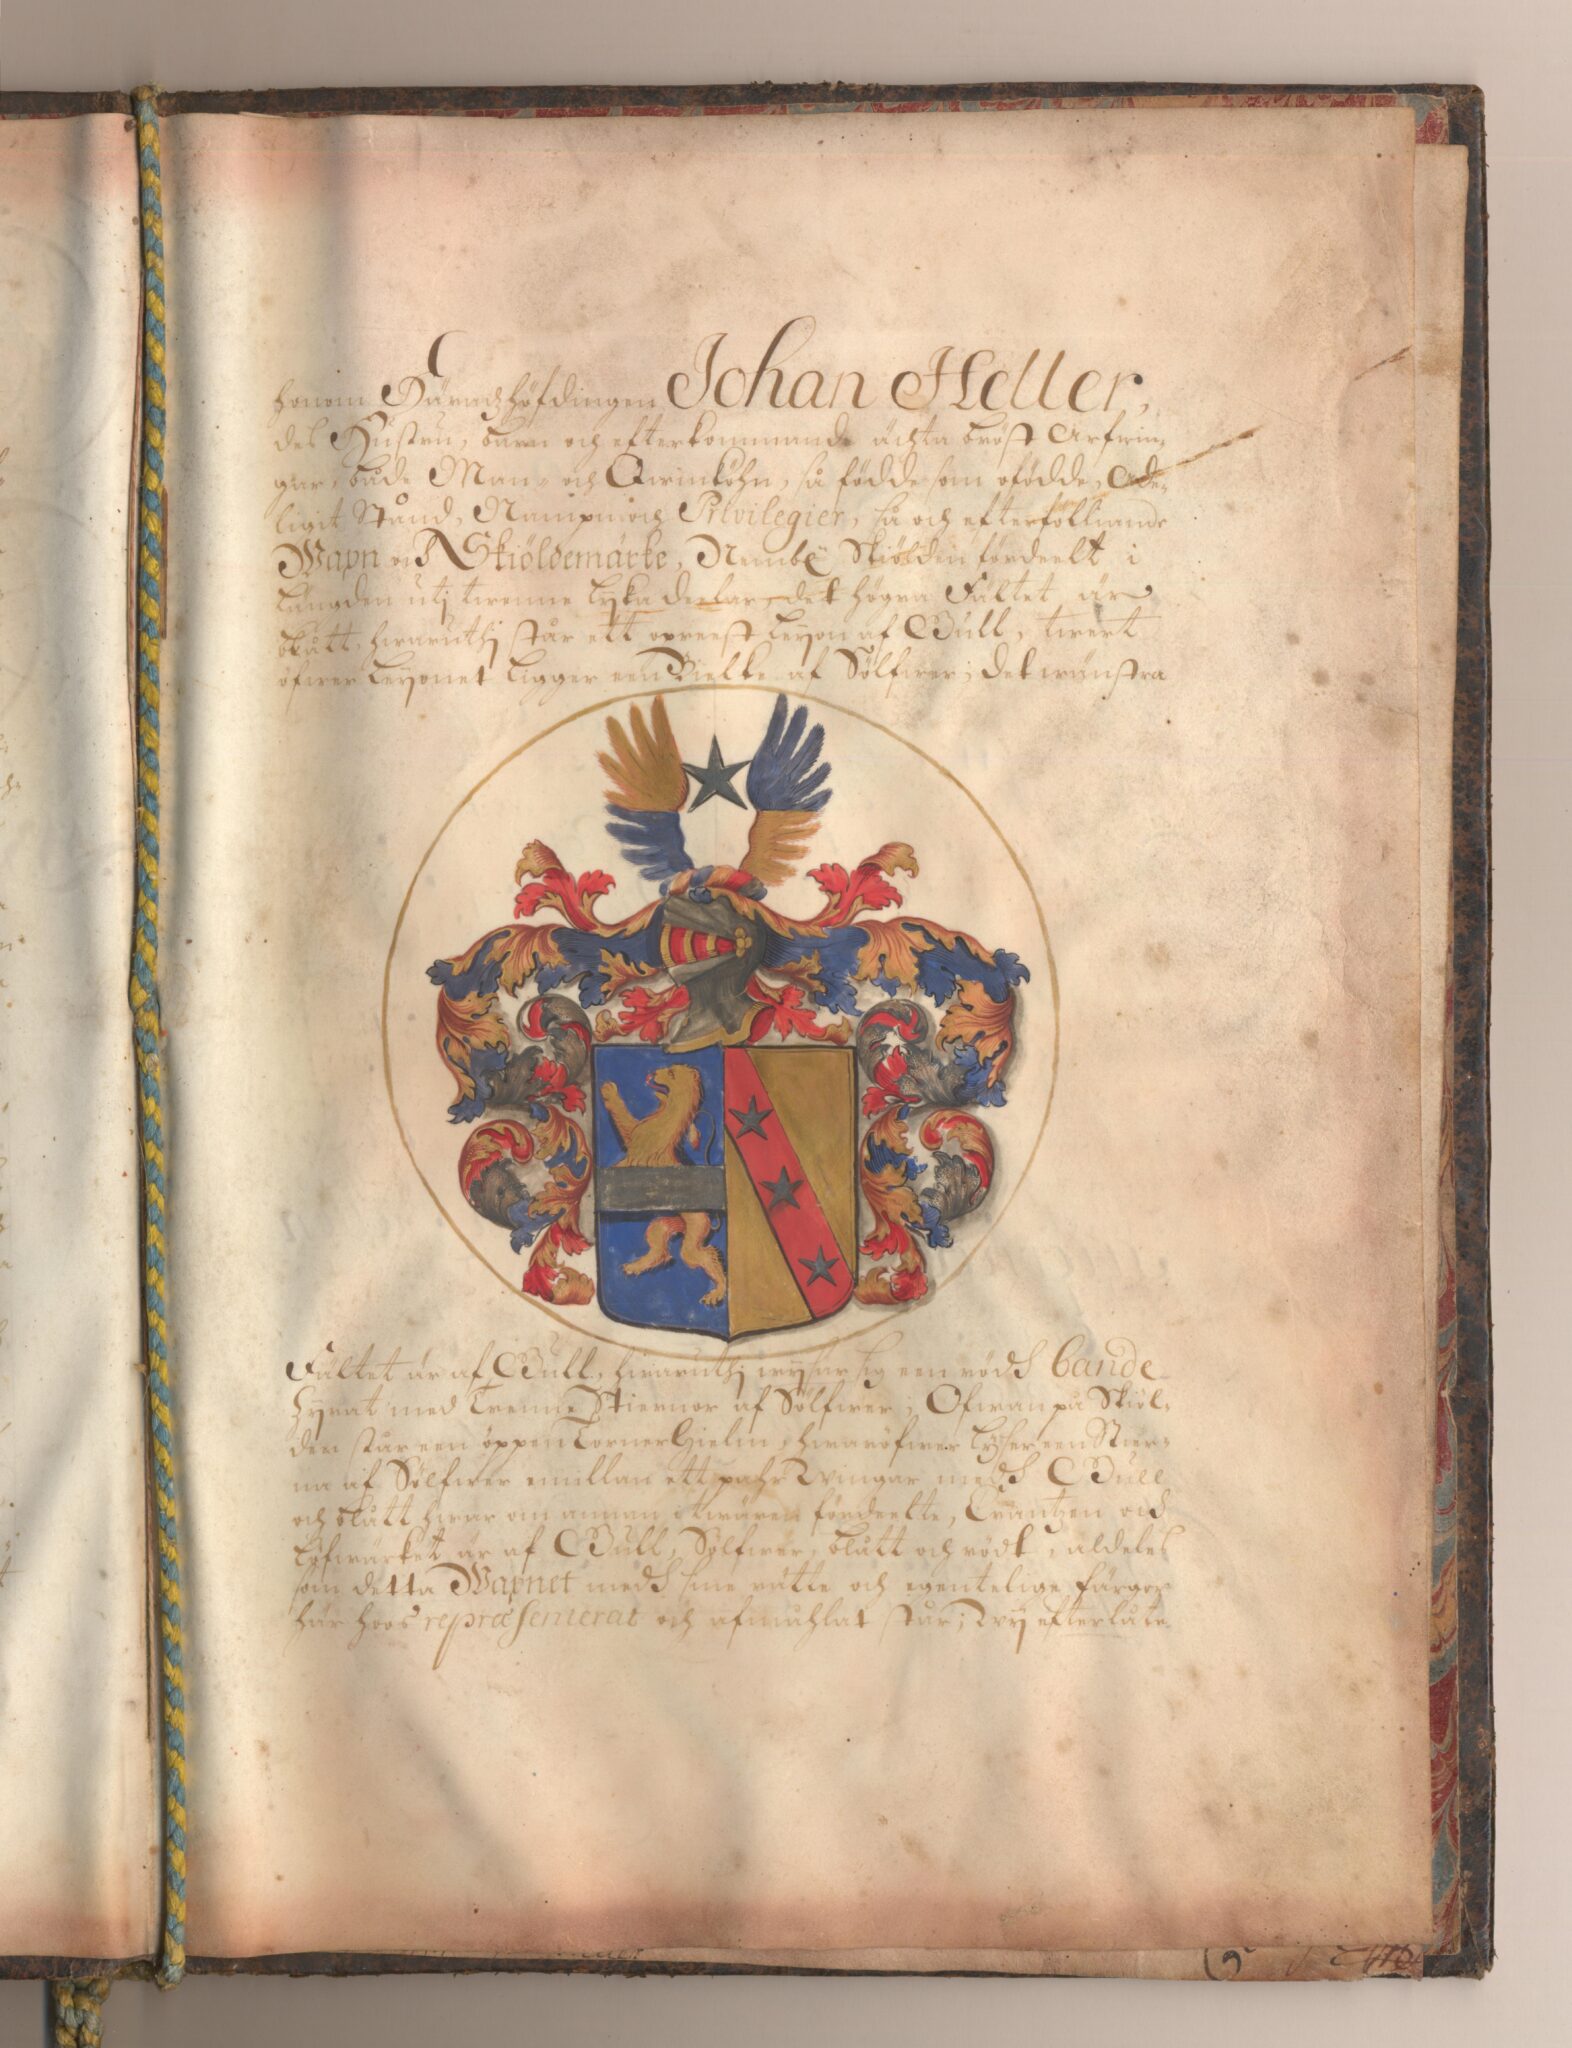 honom Häradzhöfdingen Johan Heller,
des Hustru, barn och efterkommande ächta bröst Arfwin-
gar, både Man- och Qwinköhn, så födde som ofödde, Ade-
ligit Stånd, Nampn och Privilegier, så och efterföliande
Wapn och Skiöldemärke, Nembl: Skiölden fördeelt i
Längden utj twenne lyka deelar, det högra Fältet är
blått, hwaruthj står ett opreest Leyon af Gull, twert
öfwer Leyonet ligger een Bielke af Sölfwer; det wänstra
Fältet är af Gull, hwaruthj wysar sig een rödh bande
Zyrat med trenne Stiernor af Sölfwer; Ofwan på Skiöl-
den står een öppen torner Hielm, hwaröfwer lyser een Stier-
na af Sölfwer emillan ett pahr Wingar medh Gull
och blått hwar om annan twären fördeelte, Crantzen och
Löfwärket är af Gull, Sölfwer, blått och rödt, aldeles
som detta Wapnet medh sine rätte och egentelige färgor
här hoos repræsenterat och afmahlat står; Wij efterlåte